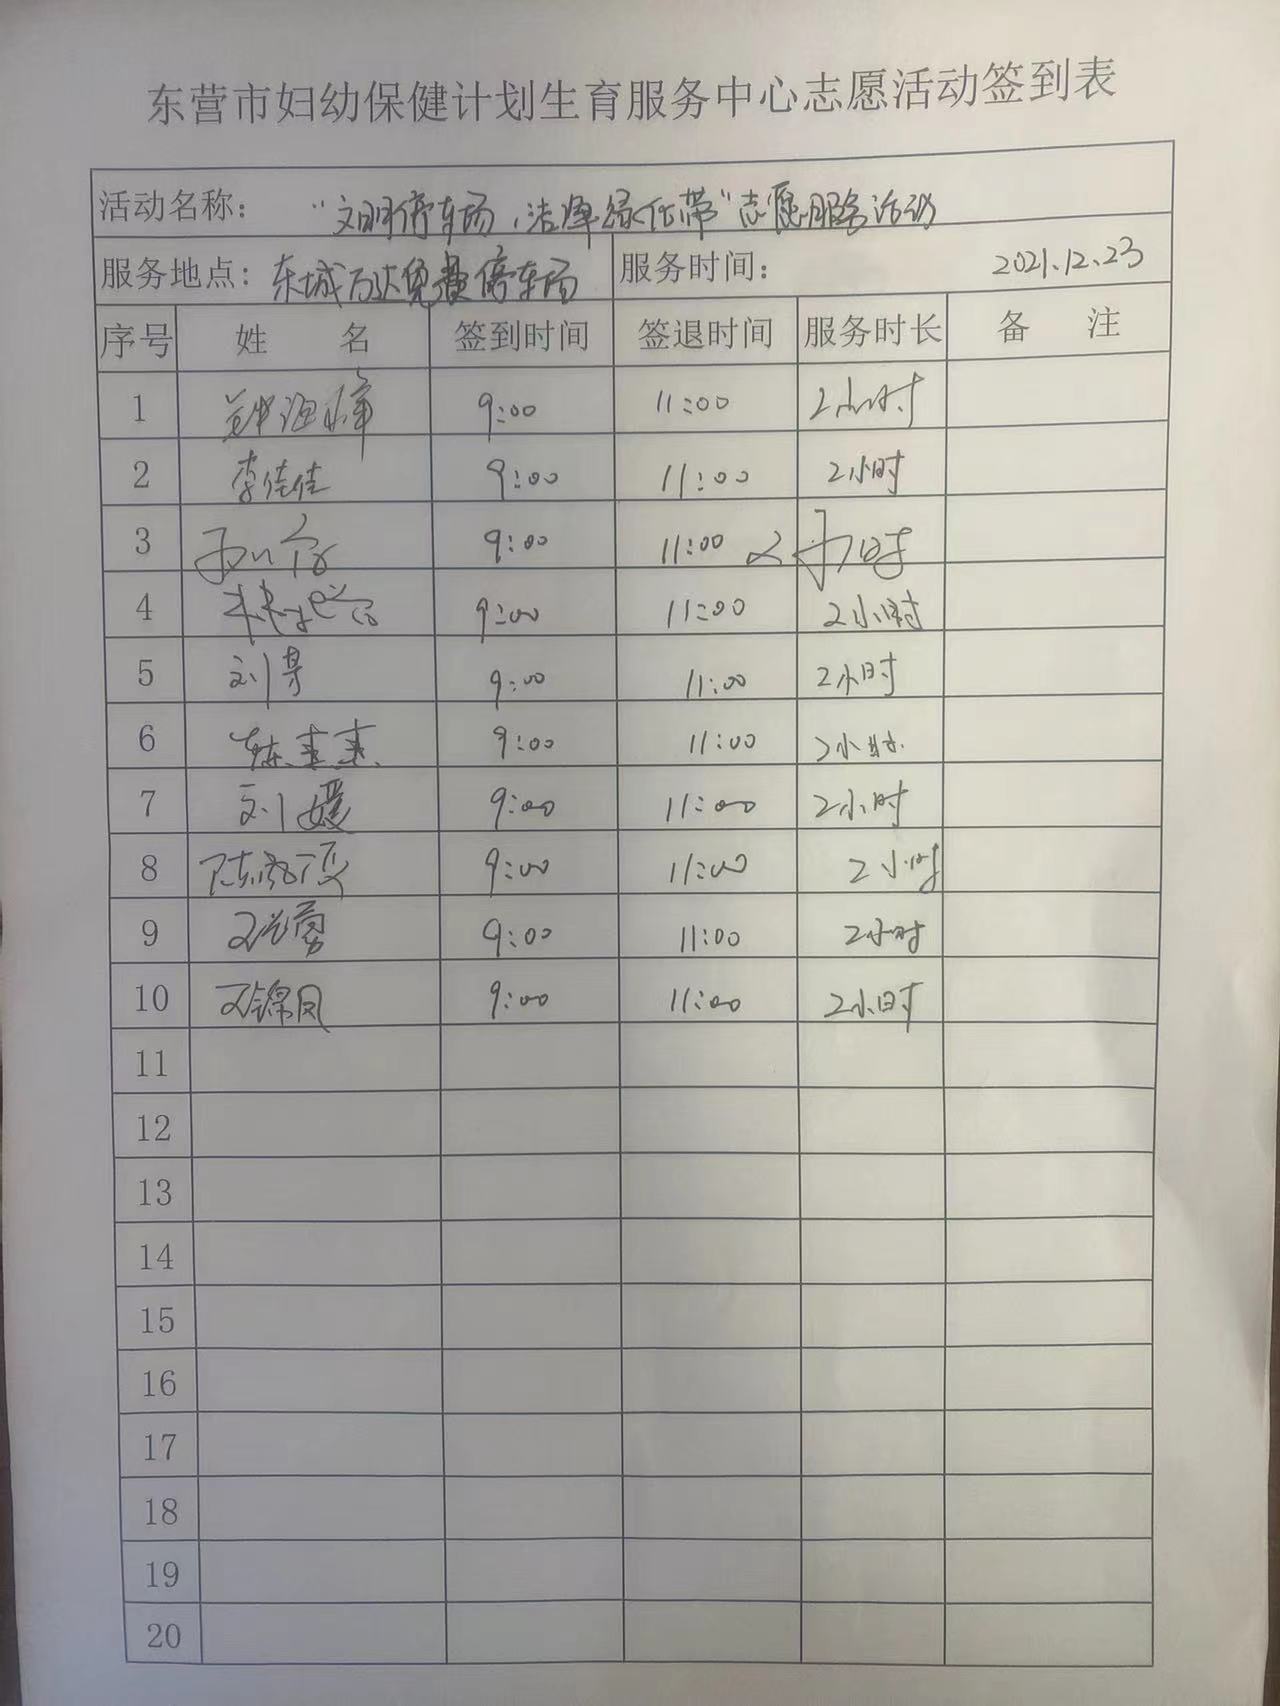 东营市妇幼保健计划生育服务中心志愿活动签到表
活动名称： “文明停车场，洁净绿化带”志愿服务活动
服务地点：东城万达免费停车场 服务时间： 2021.12.23
序号 姓 名 签到时间 签退时间 服务时长 备 注
1 9:00 11:00 2小时
2 李佳佳 9:00 11:00 2小时
3 9:00 11:00 2小时
4 9:00 11:00 2小时
5 9:00 11:00 2小时
6 9:00 11:00 2小时
7 刘媛 9:00 11:00 2小时
8 9:00 11:00 2小时
9 9:00 11:00 2小时
10 王锦凤 9:00 11:00 2小时
11
12
13
14
15
16
17
18
19
20